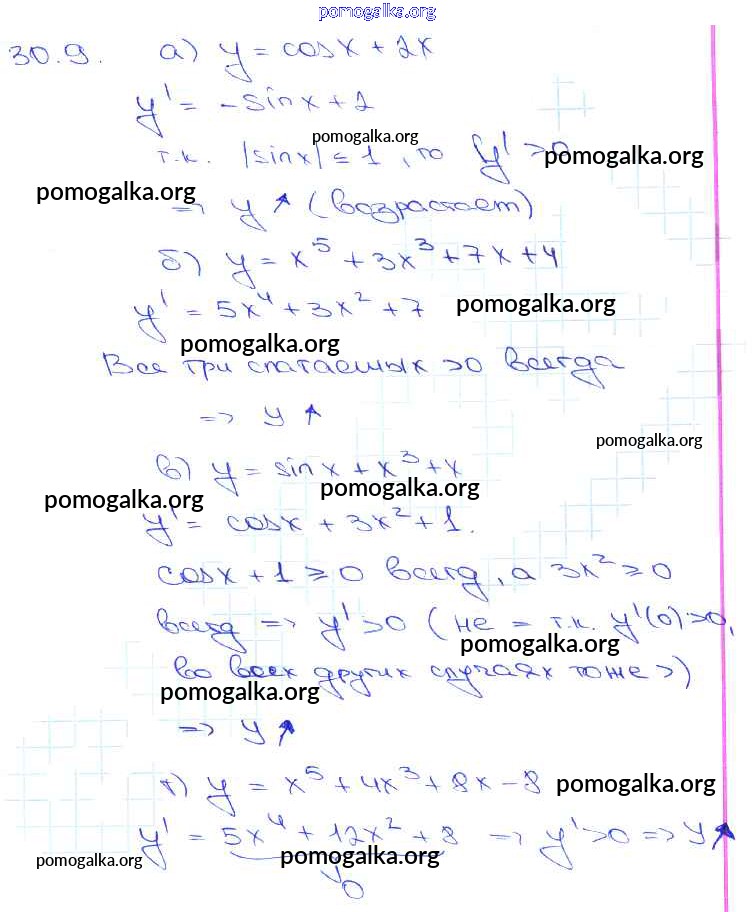 pomogalka.org
30.9. а) y = cosx + 2x
y' = -sinx + 2
pomogalka.org
т.к. |sinx| ≤ 1, то y' > 0
pomogalka.org
pomogalka.org
=> y ↑ (возрастает)
б) y = x⁵ + 3x³ + 7x + 4
y' = 5x⁴ + 3x² + 7
pomogalka.org
pomogalka.org
Все три слагаемых >0 всегда
=> y ↑
pomogalka.org
в) y = sinx + x³ + x
pomogalka.org
pomogalka.org
y' = cosx + 3x² + 1.
cosx + 1 ≥ 0 всегд, а 3x² ≥ 0
всегд => y' > 0 (не = т.к. y'(0) > 0,
pomogalka.org
во всех других случаях тоже >)
pomogalka.org
=> y ↑
г) y = x⁵ + 4x³ + 8x - 8
pomogalka.org
y' = 5x⁴ + 12x² + 8 => y' > 0 => y ↑
pomogalka.org
pomogalka.org
∨
0